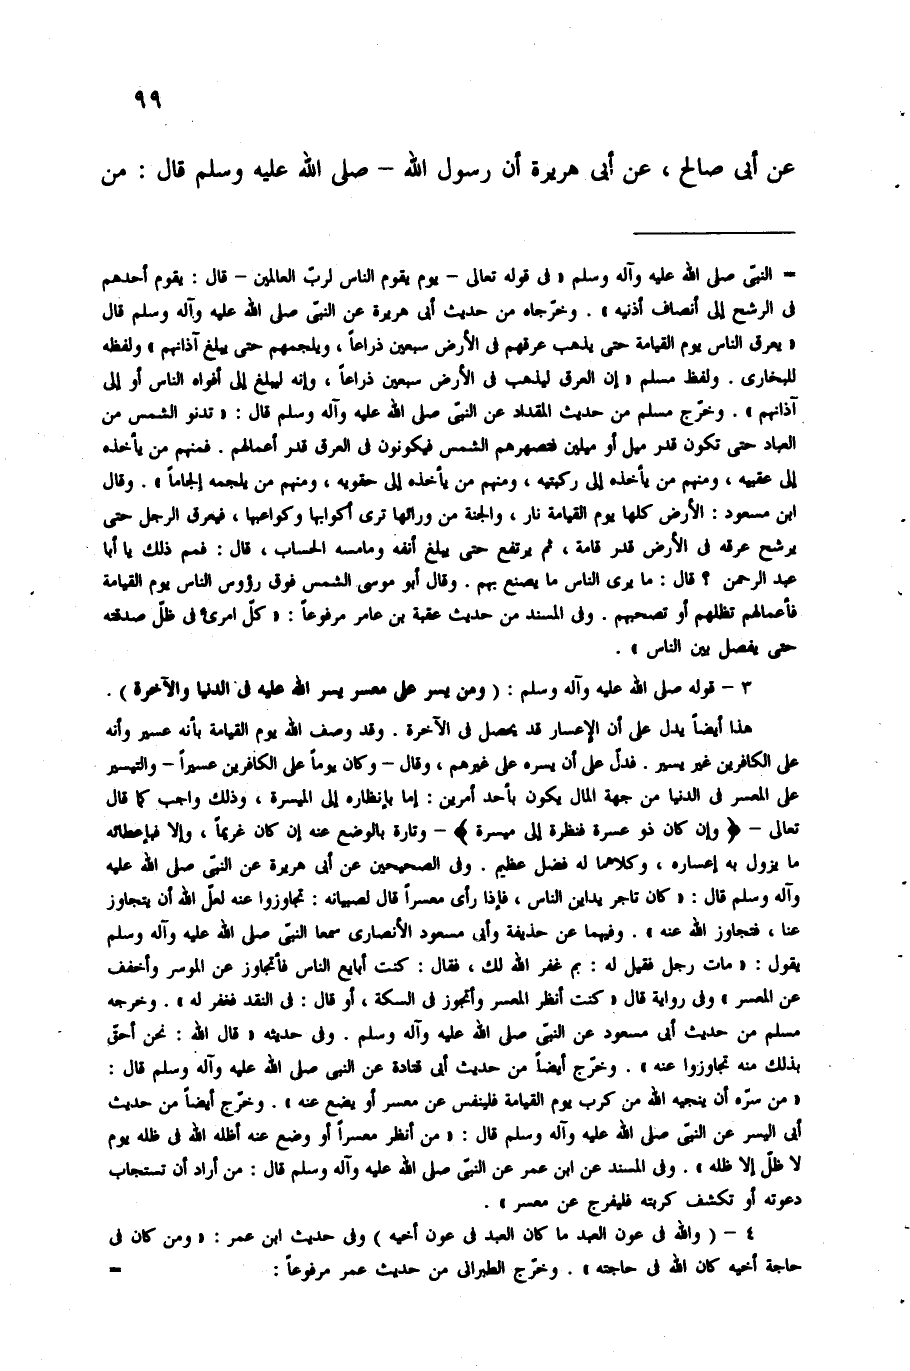 ٩٩
عن أبى صالح ، عن أبى هريرة أن رسول الله – صلى الله عليه وسلم قال : من
= النبىّ صلى الله عليه وآله وسلم « فى قوله تعالى – يوم يقوم الناس لربّ العالمين – قال : يقوم أحدهم
فى الرشح إلى أنصاف أذنيه » . وخرّجاه من حديث أبى هريرة عن النبىّ صلى الله عليه وآله وسلم قال
« يعرق الناس يوم القيامة حتى يذهب عرقهم فى الأرض سبعين ذراعاً ، ويلجمهم حتى يبلغ آذانهم » ولفظه
للبخارى . ولفظ مسلم « إن العرق ليذهب فى الأرض سبعين ذراعاً ، وإنه ليبلغ إلى أفواه الناس أو إلى
آذانهم » . وخرّج مسلم من حديث المقداد عن النبىّ صلى الله عليه وآله وسلم قال : « تدنو الشمس من
العباد حتى تكون قدر ميل أو ميلين فتصهرهم الشمس فيكونون فى العرق قدر أعمالهم . فمنهم من يأخذه
إلى عقبيه ، ومنهم من يأخذه إلى ركبتيه ، ومنهم من يأخذه إلى حقويه ، ومنهم من يلجمه إلجاماً » . وقال
ابن مسعود : الأرض كلها يوم القيامة نار ، والجنة من ورائها ترى أكوابها وكواعبها ، فيعرق الرجل حتى
يرشح عرقه فى الأرض قدر قامة ، ثم يرتفع حتى يبلغ أنفه ومامسه الحساب ، قال : فمم ذلك يا أبا
عبد الرحمن ؟ قال : ما يرى الناس ما يصنع بهم . وقال أبو موسى الشمس فوق رؤوس الناس يوم القيامة
فأعمالهم تظلهم أو تصحبهم . وفى المسند من حديث عقبة بن عامر مرفوعاً : « كلّ امرئ فى ظلّ صدقته
حتى يفصل بين الناس » .
٣ – قوله صلى الله عليه وآله وسلم : ( ومن يسر على معسر يسر الله عليه فى الدنيا والآخرة ) .
هذا أيضاً يدل على أن الإعسار قد يحصل فى الآخرة . وقد وصف الله يوم القيامة بأنه عسير وأنه
على الكافرين غير يسير . فدلّ على أن يسره على غيرهم ، وقال – وكان يوماً على الكافرين عسيراً – والتيسير
على المعسر فى الدنيا من جهة المال يكون بأحد أمرين : إما بإنظاره إلى الميسرة ، وذلك واجب كما قال
تعالى – ﴿ وإن كان ذو عسرة فنظرة إلى ميسرة ﴾ – وتارة بالوضع عنه إن كان غريماً ، وإلا فبإعطائه
ما يزول به إعساره ، وكلاهما له فضل عظيم . وفى الصحيحين عن أبى هريرة عن النبىّ صلى الله عليه
وآله وسلم قال : « كان تاجر يداين الناس ، فإذا رأى معسراً قال لصبيانه : تجاوزوا عنه لعلّ الله أن يتجاوز
عنا ، فتجاوز الله عنه » . وفيهما عن حذيفة وأبى مسعود الأنصارى سمعا النبىّ صلى الله عليه وآله وسلم
يقول : « مات رجل فقيل له : بم غفر الله لك ، فقال : كنت أبايع الناس فأتجاوز عن الموسر وأخفف
عن المعسر » وفى رواية قال « كنت أنظر المعسر وأتجوز فى السكة ، أو قال : فى النقد فغفر له » . وخرجه
مسلم من حديث أبى مسعود عن النبىّ صلى الله عليه وآله وسلم . وفى حديثه « قال الله : نحن أحقّ
بذلك منه تجاوزوا عنه » . وخرّج أيضاً من حديث أبى قتادة عن النبى صلى الله عليه وآله وسلم قال :
« من سرّه أن ينجيه الله من كرب يوم القيامة فلينفس عن معسر أو يضع عنه » . وخرّج أيضاً من حديث
أبى اليسر عن النبىّ صلى الله عليه وآله وسلم قال : « من أنظر معسراً أو وضع عنه أظله الله فى ظله يوم
لا ظلّ إلا ظله » . وفى المسند عن ابن عمر عن النبىّ صلى الله عليه وآله وسلم قال : من أراد أن تستجاب
دعوته أو تكشف كربته فليفرج عن معسر » .
٤ – ( والله فى عون العبد ما كان العبد فى عون أخيه ) وفى حديث ابن عمر : « ومن كان فى
حاجة أخيه كان الله فى حاجته » . وخرّج الطبرانى من حديث عمر مرفوعاً : =